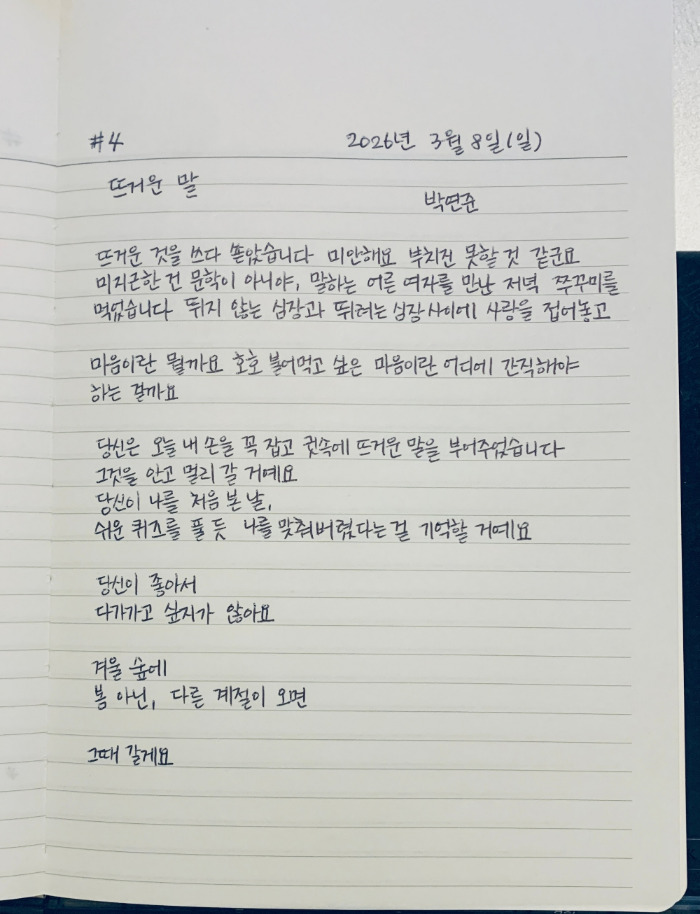 #4
2026년 3월 8일(일)
뜨거운 말
박연준
뜨거운 것을 쓰다 쏟았습니다 미안해요 부치진 못할 것 같군요
미지근한 건 문학이 아니야, 말하는 어른 여자를 만난 저녁 쭈꾸미를
먹었습니다 뛰지 않는 심장과 뛰려는 심장 사이에 사랑을 접어놓고
마음이란 뭘까요 호호 불어먹고 싶은 마음이란 어디에 간직해야
하는 걸까요
당신은 오늘 내 손을 꼭 잡고 귓속에 뜨거운 말을 부어주었습니다
그것을 안고 멀리 갈 거예요
당신이 나를 처음 본 날,
쉬운 퀴즈를 풀 듯 나를 맞춰버렸다는 걸 기억할 거예요
당신이 좋아서
다가가고 싶지가 않아요
겨울 숲에
봄 아닌, 다른 계절이 오면
그때 갈게요